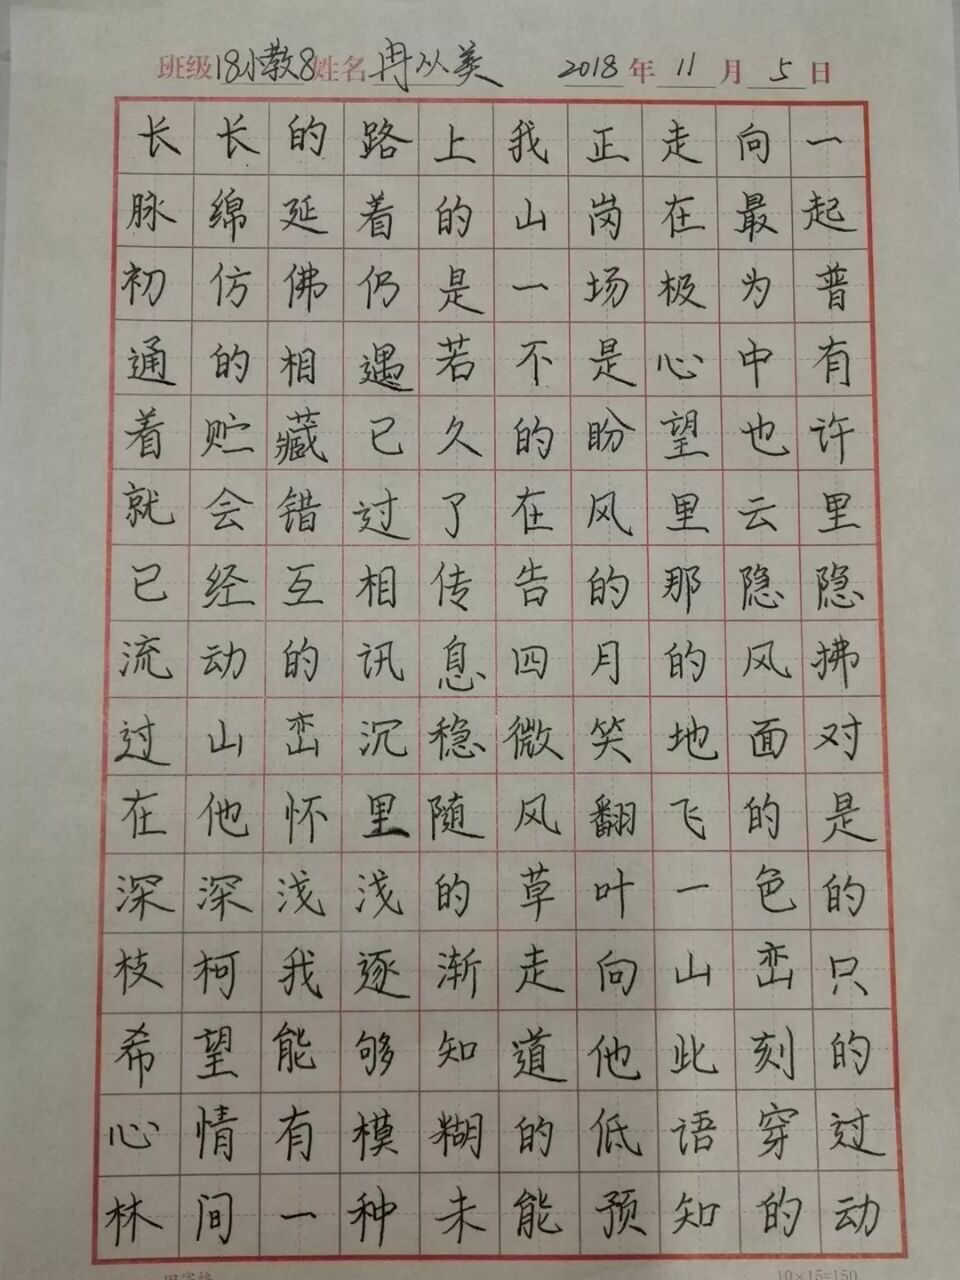 班级18小教8姓名冉从美 2018年11月5日
长长的路上我正走向一
脉绵延着的山岗在最起
初仿佛仍是一场极为普
通的相遇若不是心中有
着贮藏已久的盼望也许
就会错过了在风里云里
已经互相传告的那隐隐
流动的讯息四月的风拂
过山峦沉稳微笑地面对
在他怀里随风翻飞的是
深深浅浅的草叶一色的
枝柯我逐渐走向山峦只
希望能够知道他此刻的
心情有模糊的低语穿过
林间一种未能预知的动
10×15=150